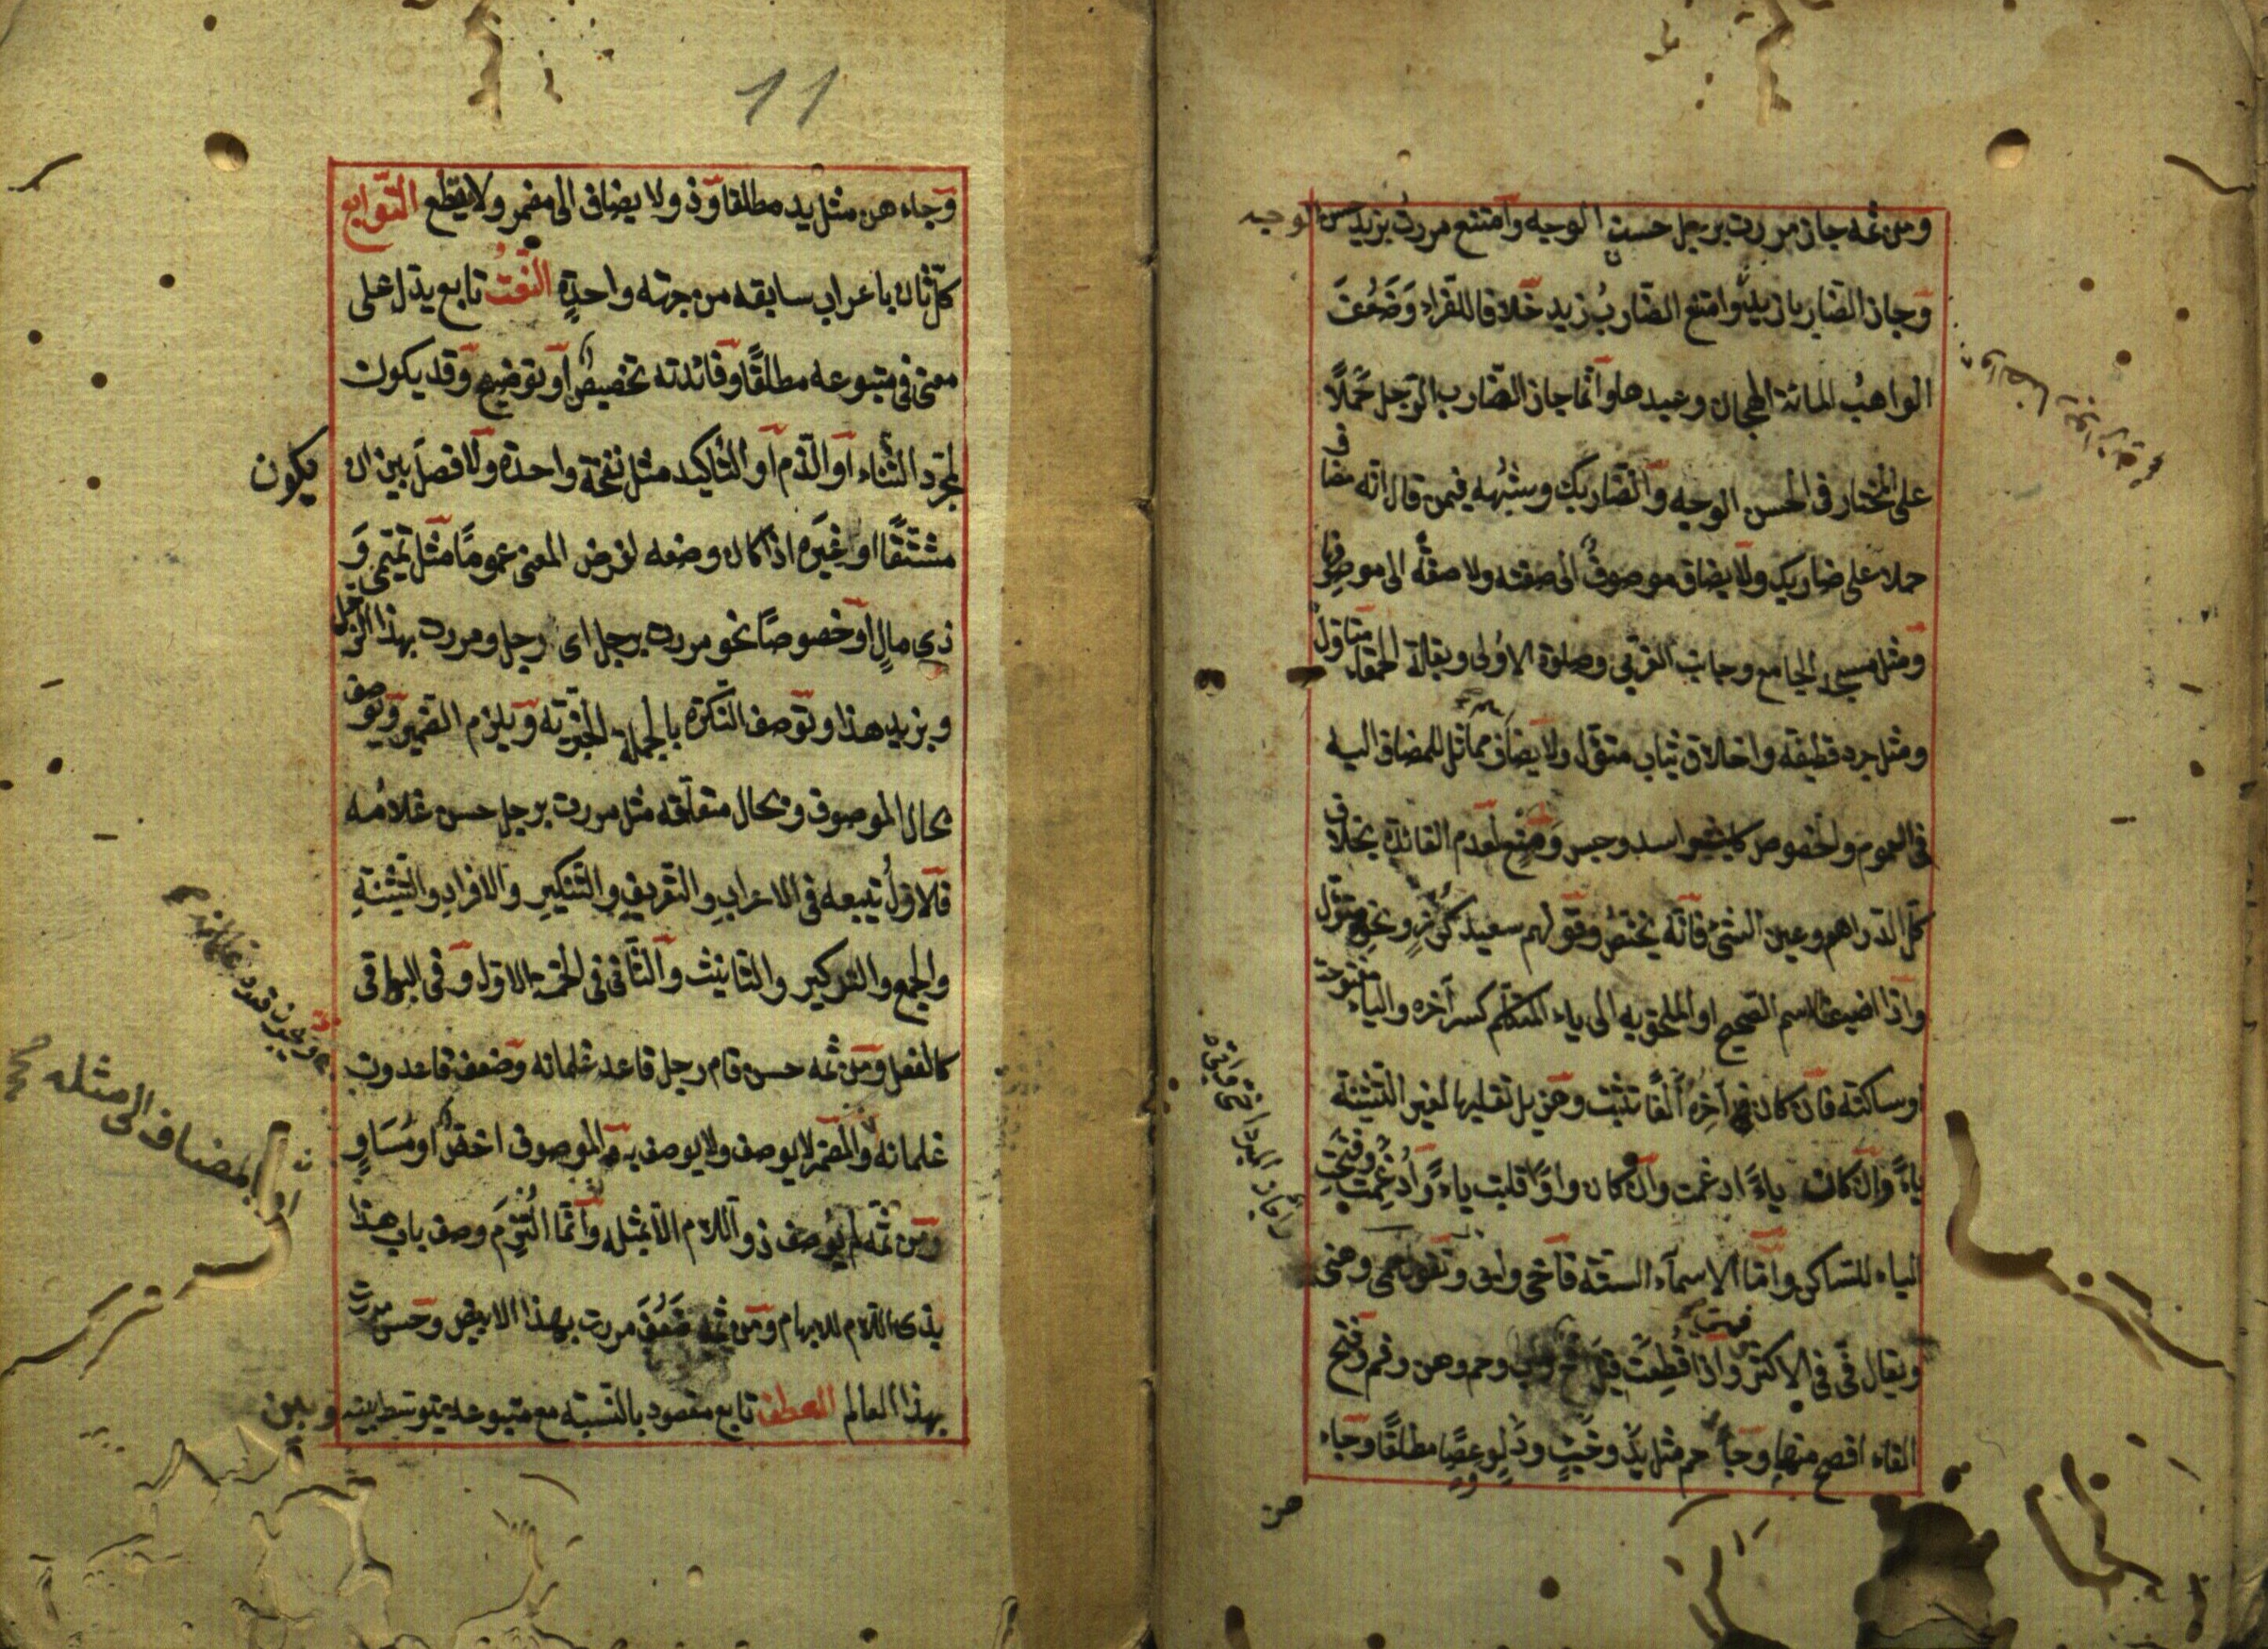 ومن ثمه جاز مررت برجل حسن الوجيه وامتنع مررت بزيد حسن الوجيه
وجاز الضاربا زيد وامتنع الضارب زيد خلافا للفراء وضعف
الواهب المائة الهجان وعبدها وانما جاز الضارب الرجل حملا
على المختار في الحسن الوجيه والضاربك وشبهه فيمن قال انه مضاف
حملا على ضاربك ولا يضاف موصوف الى صفته ولا صفة الى موصوفها
ومثل مسجد الجامع وجانب الغربي وصلوة الاولى وبقلة الحمقاء متاول
ومثل جرد قطيفة واخلاق ثياب متؤل ولا يضاف مماثل للمضاف اليه
في العموم والخصوص كليث واسد وحبس ومنع لعدم الفائدة بخلاف
كل الدراهم وعين الشئ فانه يختص وقولهم سعيد كرز ونحوه متؤل
واذا اضيف الاسم الصحيح او الملحق به الى ياء المتكلم كسر آخره والياء مفتوحة
او ساكنة فان كان آخره الفا تثبت وهذيل تقلبها لغير التثنية
ياء وان كان ياء ادغمت وان كان واوا قلبت ياء وادغمت وفتحت
الياء للساكن واما الاسماء الستة فاخي وابي وتقول حمى وهنى
ويقال في في الاكثر وفمي واذا قطعت قيل اخ واب وحم وهن وفم وفتح
الفاء افصح منهما وجاء حم مثل يد وخبء ودلو وعصا مطلقا وجاء
هن
11
وجاء هن مثل يد مطلقا وذو لا يضاف الى مضمر ولا يقطع التوابع
كل ثان باعراب سابقه من جهة واحدة النعت تابع يدل على
معنى في متبوعه مطلقا وفائدته تخصيص او توضيح وقد يكون
لمجرد الثناء او الذم او التاكيد مثل نفخة واحدة ولا فصل بين ان يكون
مشتقا او غيره اذا كان وضعه لغرض المعنى عموما مثل تميمي و
ذي مال او خصوصا نحو مررت برجل اي رجل ومررت بهذا الرجل
وبزيد هذا وتوصف النكرة بالجملة الخبرية ويلزم الضمير ويوصف
بحال الموصوف وبحال متعلقه مثل مررت برجل حسن غلامه
فالاول يتبعه في الاعراب والتعريف والتنكير والافراد والتثنية
والجمع والتذكير والتانيث والثاني في الخمسة الاول وفي البواقي
كالفعل ومن ثمه حسن قام رجل قاعد غلمانه وضعف قاعدون
غلمانه ويجوز قعود غلمانه
والمضمر لا يوصف ولا يوصف به والموصوف اخص او مساو
ومن ثمه لم يوصف ذو اللام الا بمثله او بالمضاف الى مثله وانما التزم وصف باب هذا
بذى اللام للابهام ومن ثمه ضعف مررت بهذا الابيض وحسن مررت
بهذا العالم العطف تابع مقصود بالنسبة مع متبوعه يتوسط بينه وبين